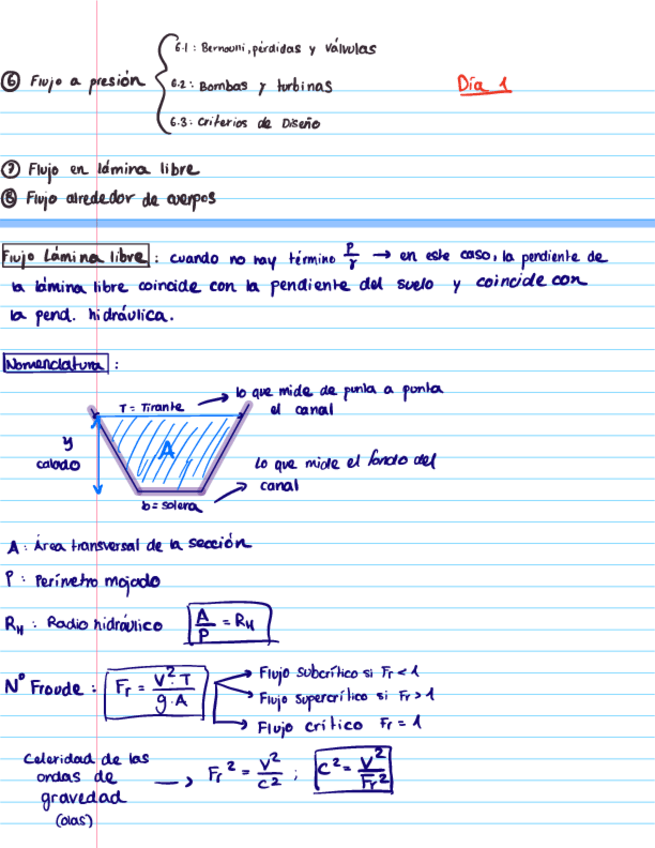 6.1: Bernoulli, pérdidas y válvulas
⑥ Flujo a presión
6.2: Bombas y turbinas
Día 1
6.3: Criterios de Diseño
⑦ Flujo en lámina libre
⑧ Flujo alrededor de cuerpos
Flujo Lámina libre: cuando no hay término P/γ → en este caso, la pendiente de
la lámina libre coincide con la pendiente del suelo y coincide con
la pend. hidráulica.
Nomenclatura:
T = Tirante → lo que mide de punta a punta
el canal
y
calado
A
Lo que mide el fondo del
canal
b = solera
A: Área transversal de la sección
P: Perímetro mojado
R_H: Radio hidráulico A/P = R_H
Nº Froude: Fr = V²·T / g·A
→ Flujo subcrítico si Fr < 1
→ Flujo supercrítico si Fr > 1
→ Flujo crítico Fr = 1
Celeridad de las
ondas de
gravedad
(olas)
→ Fr² = V²/c² ; c² = V²/Fr²